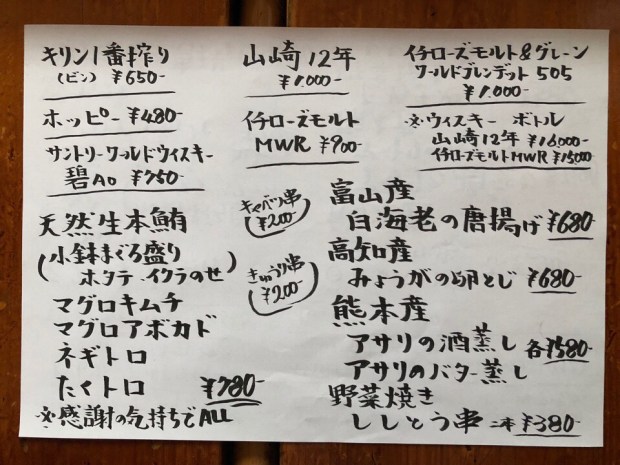 キリン1番搾り
(ビン) ¥650-
ホッピー ¥480-
サントリーワールドウィスキー
碧Ao ¥750-
山崎12年
¥1.000-
イチローズモルト
MWR ¥900-
イチローズモルト&グレーン
ワールドブレンデット 505
¥1.000-
※ウィスキー ボトル
山崎12年 ¥16000-
イチローズモルトMWR ¥15000
天然生本鮪
(小鉢まぐろ盛り
ホタテ イクラのせ)
マグロキムチ
マグロアボカド
ネギトロ
たくトロ ¥780-
※感謝の気持ちでALL
キャベツ串
¥200-
きゅうり串
¥200-
富山産
白海老の唐揚げ ¥680
高知産
みょうがの卵とじ ¥680-
熊本産
アサリの酒蒸し 各¥580-
アサリのバター蒸し
野菜焼き
ししとう串 二本 ¥380-